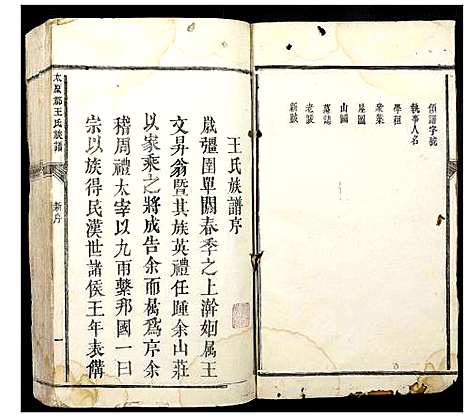 領譜字號
執事人名
學租
衆業
屋圖
山圖
墓誌
老跋
新跋
王氏族譜序
歲彊圉單閼春季之上澣姻属王
文昇翁暨其族英禮任踵余山莊
以家乘之將成告余而属為序余
稽周禮太宰以九兩繫邦國一曰
宗以族得民漢世諸侯王年表僃
太原郡王氏族譜
新序
一